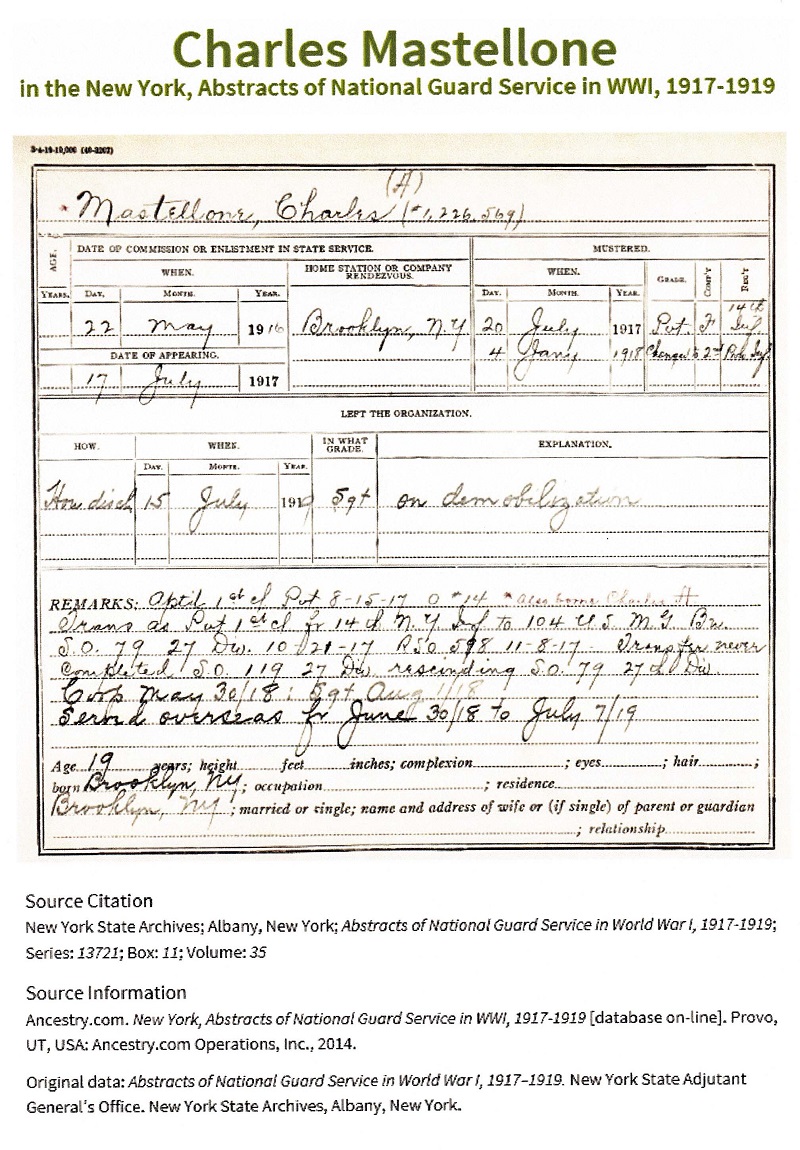 Charles Mastellone
in the New York, Abstracts of National Guard Service in WWI, 1917-1919
3-4-19-10,000 (40-3202)
(A)
* Mastellone, Charles (#1,226,569)
AGE.
DATE OF COMMISSION OR ENLISTMENT IN STATE SERVICE.
MUSTERED.
WHEN.
HOME STATION OR COMPANY RENDEZVOUS.
WHEN.
GRADE.
COMP'Y
REG'T
YEARS.
DAY.
MONTH.
YEAR.
DAY.
MONTH.
YEAR.
22 May 1916 Brooklyn, N.Y 20 July 1917 Pvt F 14th Inf
DATE OF APPEARING.
4 Jany 1918 Changed to 2nd Inf
17 July 1917
LEFT THE ORGANIZATION.
HOW.
WHEN.
IN WHAT GRADE.
EXPLANATION.
DAY.
MONTH.
YEAR.
Hon disch 15 July 1919 Sgt on demobilization
REMARKS: 1st cl Pvt 8-15-17 O #14 * Also borne Charles A
Trans as Pvt 1st cl fr 14th N.Y Inf to 104 U S M G Bn
S.O. 79 27 Div. 10-21-17 RSO 598 11-8-17. Transfer never
completed S.O. 119 27 Div rescinding S.O. 79 27th Div
Corp May 30/18: Sgt Aug 1/18
Served overseas fr June 30/18 to July 7/19
Age 19 years; height feet inches; complexion ; eyes ; hair ;
born Brooklyn, NY ; occupation ; residence
Brooklyn, NY ; married or single; name and address of wife or (if single) of parent or guardian
; relationship
Source Citation
New York State Archives; Albany, New York; Abstracts of National Guard Service in World War I, 1917-1919;
Series: 13721; Box: 11; Volume: 35
Source Information
Ancestry.com. New York, Abstracts of National Guard Service in WWI, 1917-1919 [database on-line]. Provo,
UT, USA: Ancestry.com Operations, Inc., 2014.
Original data: Abstracts of National Guard Service in World War I, 1917–1919. New York State Adjutant
General's Office. New York State Archives, Albany, New York.